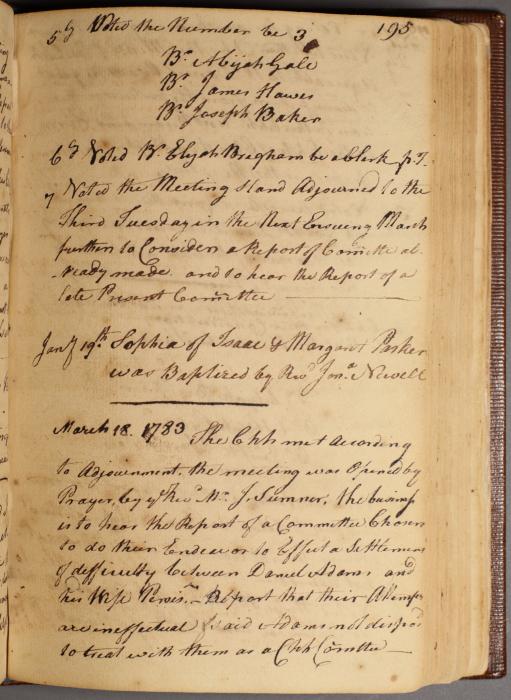 195
5ly Voted the Number be 3
Br. Abijah Gale
Br. James Hawes
Br. Joseph Baker
6d Voted Br. Elijah Bregham be a Clerk p.T.
7 Voted the Meeting stand Adjourned to the
Third Tuesday in the Next Ensueing March
further to Consider a Report of Comtte al-
-ready made and to hear the Report of a
late Present Comittee
Jany 19th Sophia of Isaac & Margaret Parker
was Baptized by Revd Jona. Newell
March 18. 1783 The Chh met According
to Adjournment, the meeting was Opened by
Prayer, by ye Revd Mr. J. Sumner, the business
is to hear the Report of a Committee Chosen
to do their Endeavor to Effect a Settlement
of difficulty between Daniel Adams and
his Wife Persis. Report that their Attempts
are ineffectual said Adams not disposd
to treat with them as a Chh Comttee